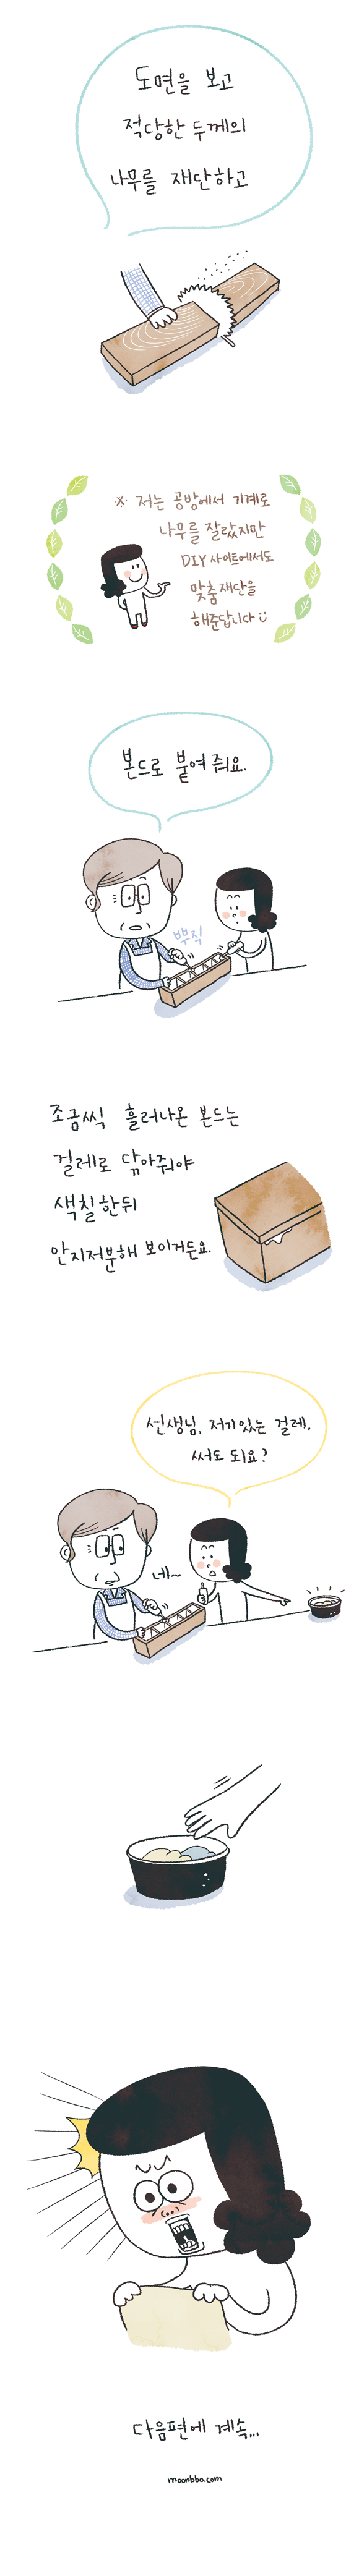 도면을 보고
적당한 두께의
나무를 재단하고
※ 저는 공방에서 기계로
나무를 잘랐지만
DIY 사이트에서도
맞춤재단을
해준답니다
본드로 붙여 줘요.
뿌직
조금씩 흘러나온 본드는
걸레로 닦아줘야
색칠한뒤
안지저분해 보이거든요.
선생님, 저기있는 걸레,
써도 되요?
네~
다음편에 계속...
moonbbo.com